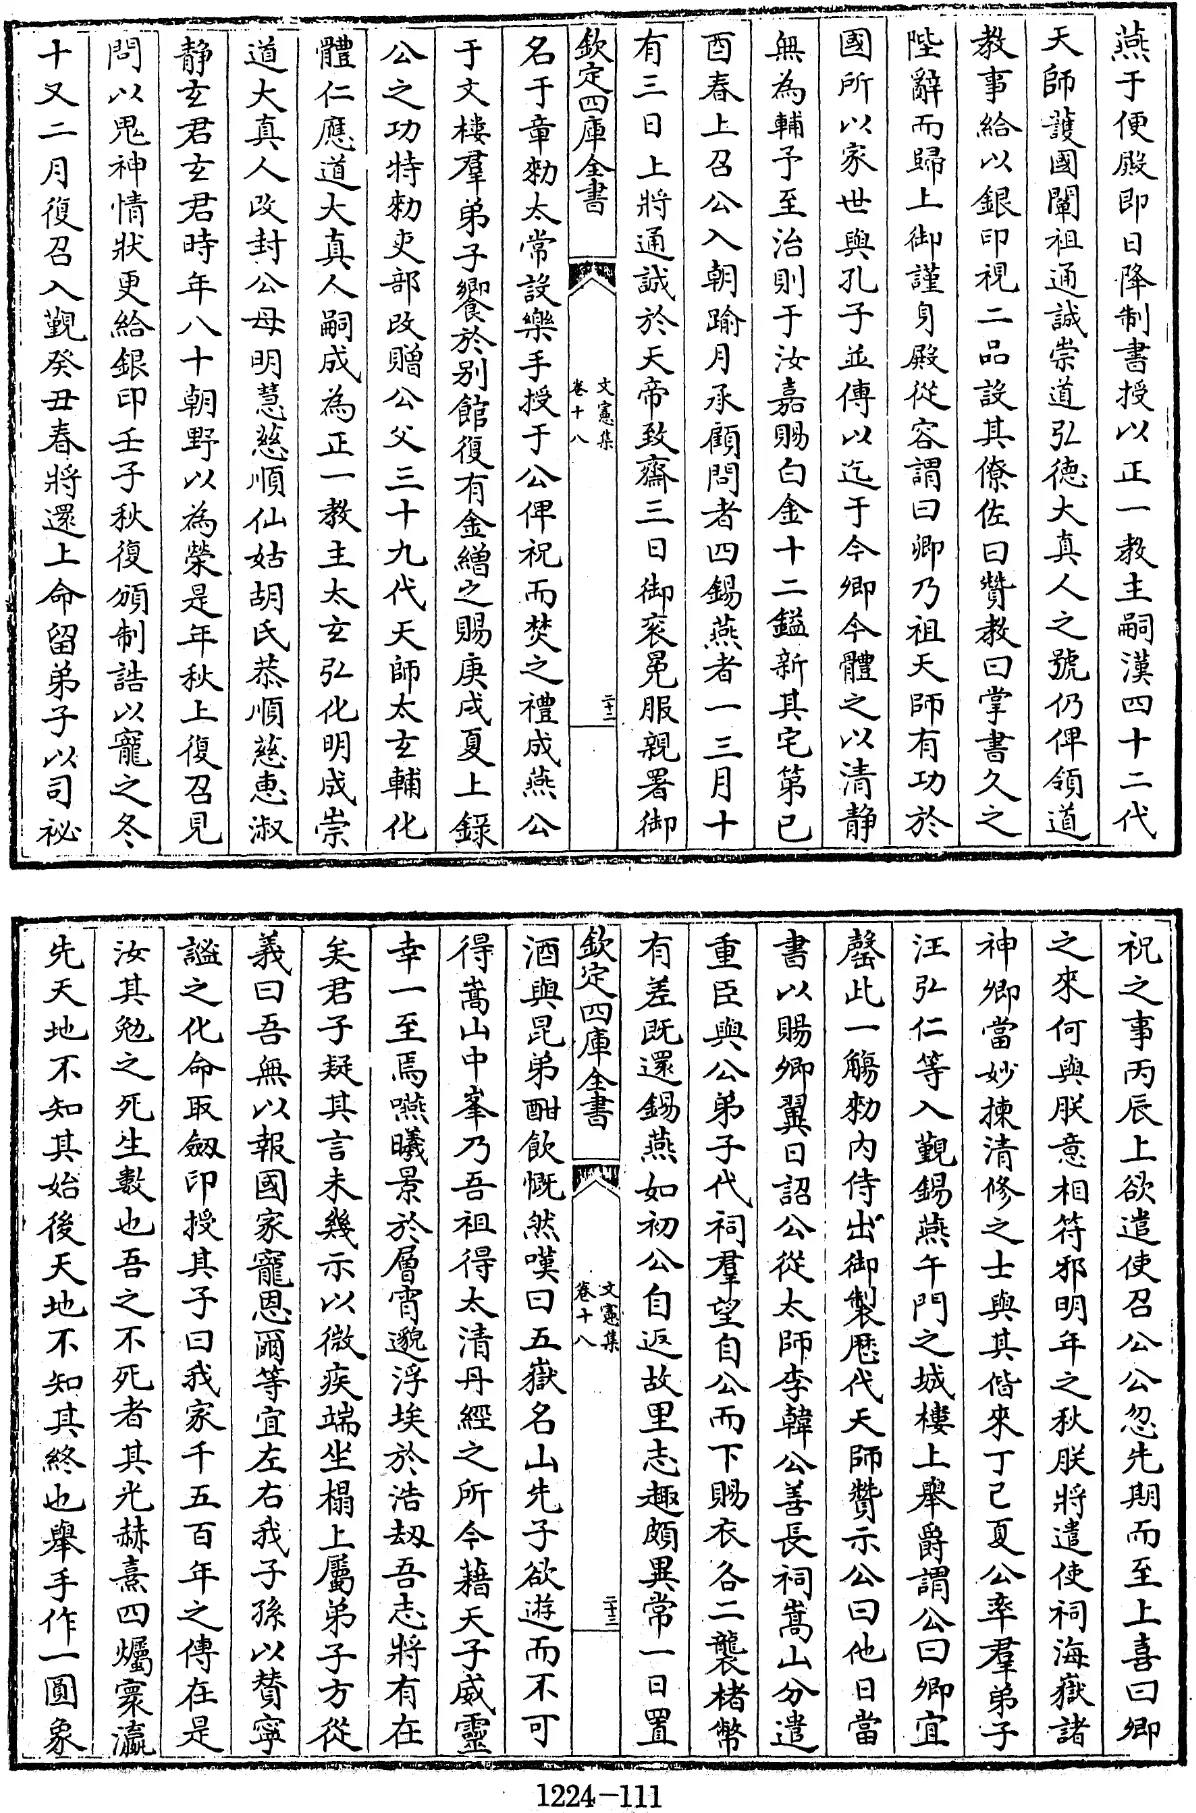 燕于便殿即日降制書授以正一教主嗣漢四十二代
天師護國闡祖通誠崇道弘德大真人之號仍俾領道
教事給以銀印視二品設其僚佐曰贊教曰掌書久之
陛辭而歸上御謹身殿從容謂曰卿乃祖天師有功於
國所以家世與孔子並傳以迄于今卿今體之以清静
無為輔予至治則于汝嘉賜白金十二鎰新其宅第已
酉春上召公入朝踰月承顧問者四錫燕者一三月十
有三日上將通誠於天帝致齋三日御衮冕服親署御
欽定四庫全書
文憲集
卷十八
二十二
名于章勑太常設樂手授于公俾祝而焚之禮成燕公
于文樓羣弟子饗於别館復有金繒之賜庚戌夏上錄
公之功特勑吏部改贈公父三十九代天師太玄輔化
體仁應道大真人嗣成為正一教主太玄弘化明成崇
道大真人改封公母明慧慈順仙姑胡氏恭順慈惠淑
静玄君玄君時年八十朝野以為榮是年秋上復召見
問以鬼神情狀更給銀印壬子秋復頒制誥以寵之冬
十又二月復召入覲癸丑春將還上命留弟子以司祕
祝之事丙辰上欲遣使召公公忽先期而至上喜曰卿
之來何與朕意相符邪明年之秋朕將遣使祠海嶽諸
神卿當妙揀清修之士與其偕來丁已夏公率羣弟子
汪弘仁等入覲錫燕午門之城樓上舉爵謂公曰卿宜
罄此一觴勑内侍出御製歷代天師贊示公曰他日當
書以賜卿翼日詔公從太師李韓公善長祠嵩山分遣
重臣與公弟子代祠羣望自公而下賜衣各二襲楮幣
有差既還錫燕如初公自返故里志趣頗異常一日置
欽定四庫全書
文憲集
卷十八
二十三
酒與昆弟酣飲慨然嘆曰五嶽名山先子欲遊而不可
得嵩山中峯乃吾祖得太清丹經之所今藉天子威靈
幸一至焉嚥曦景於層霄邈浮埃於浩刼吾志將有在
矣君子疑其言未幾示以微疾端坐榻上屬弟子方從
義曰吾無以報國家寵恩爾等宜左右我子孫以贊寧
謐之化命取劔印授其子曰我家千五百年之傳在是
汝其勉之死生數也吾之不死者其光赫熹四爥寰瀛
先天地不知其始後天地不知其終也舉手作一圓象
1224—111